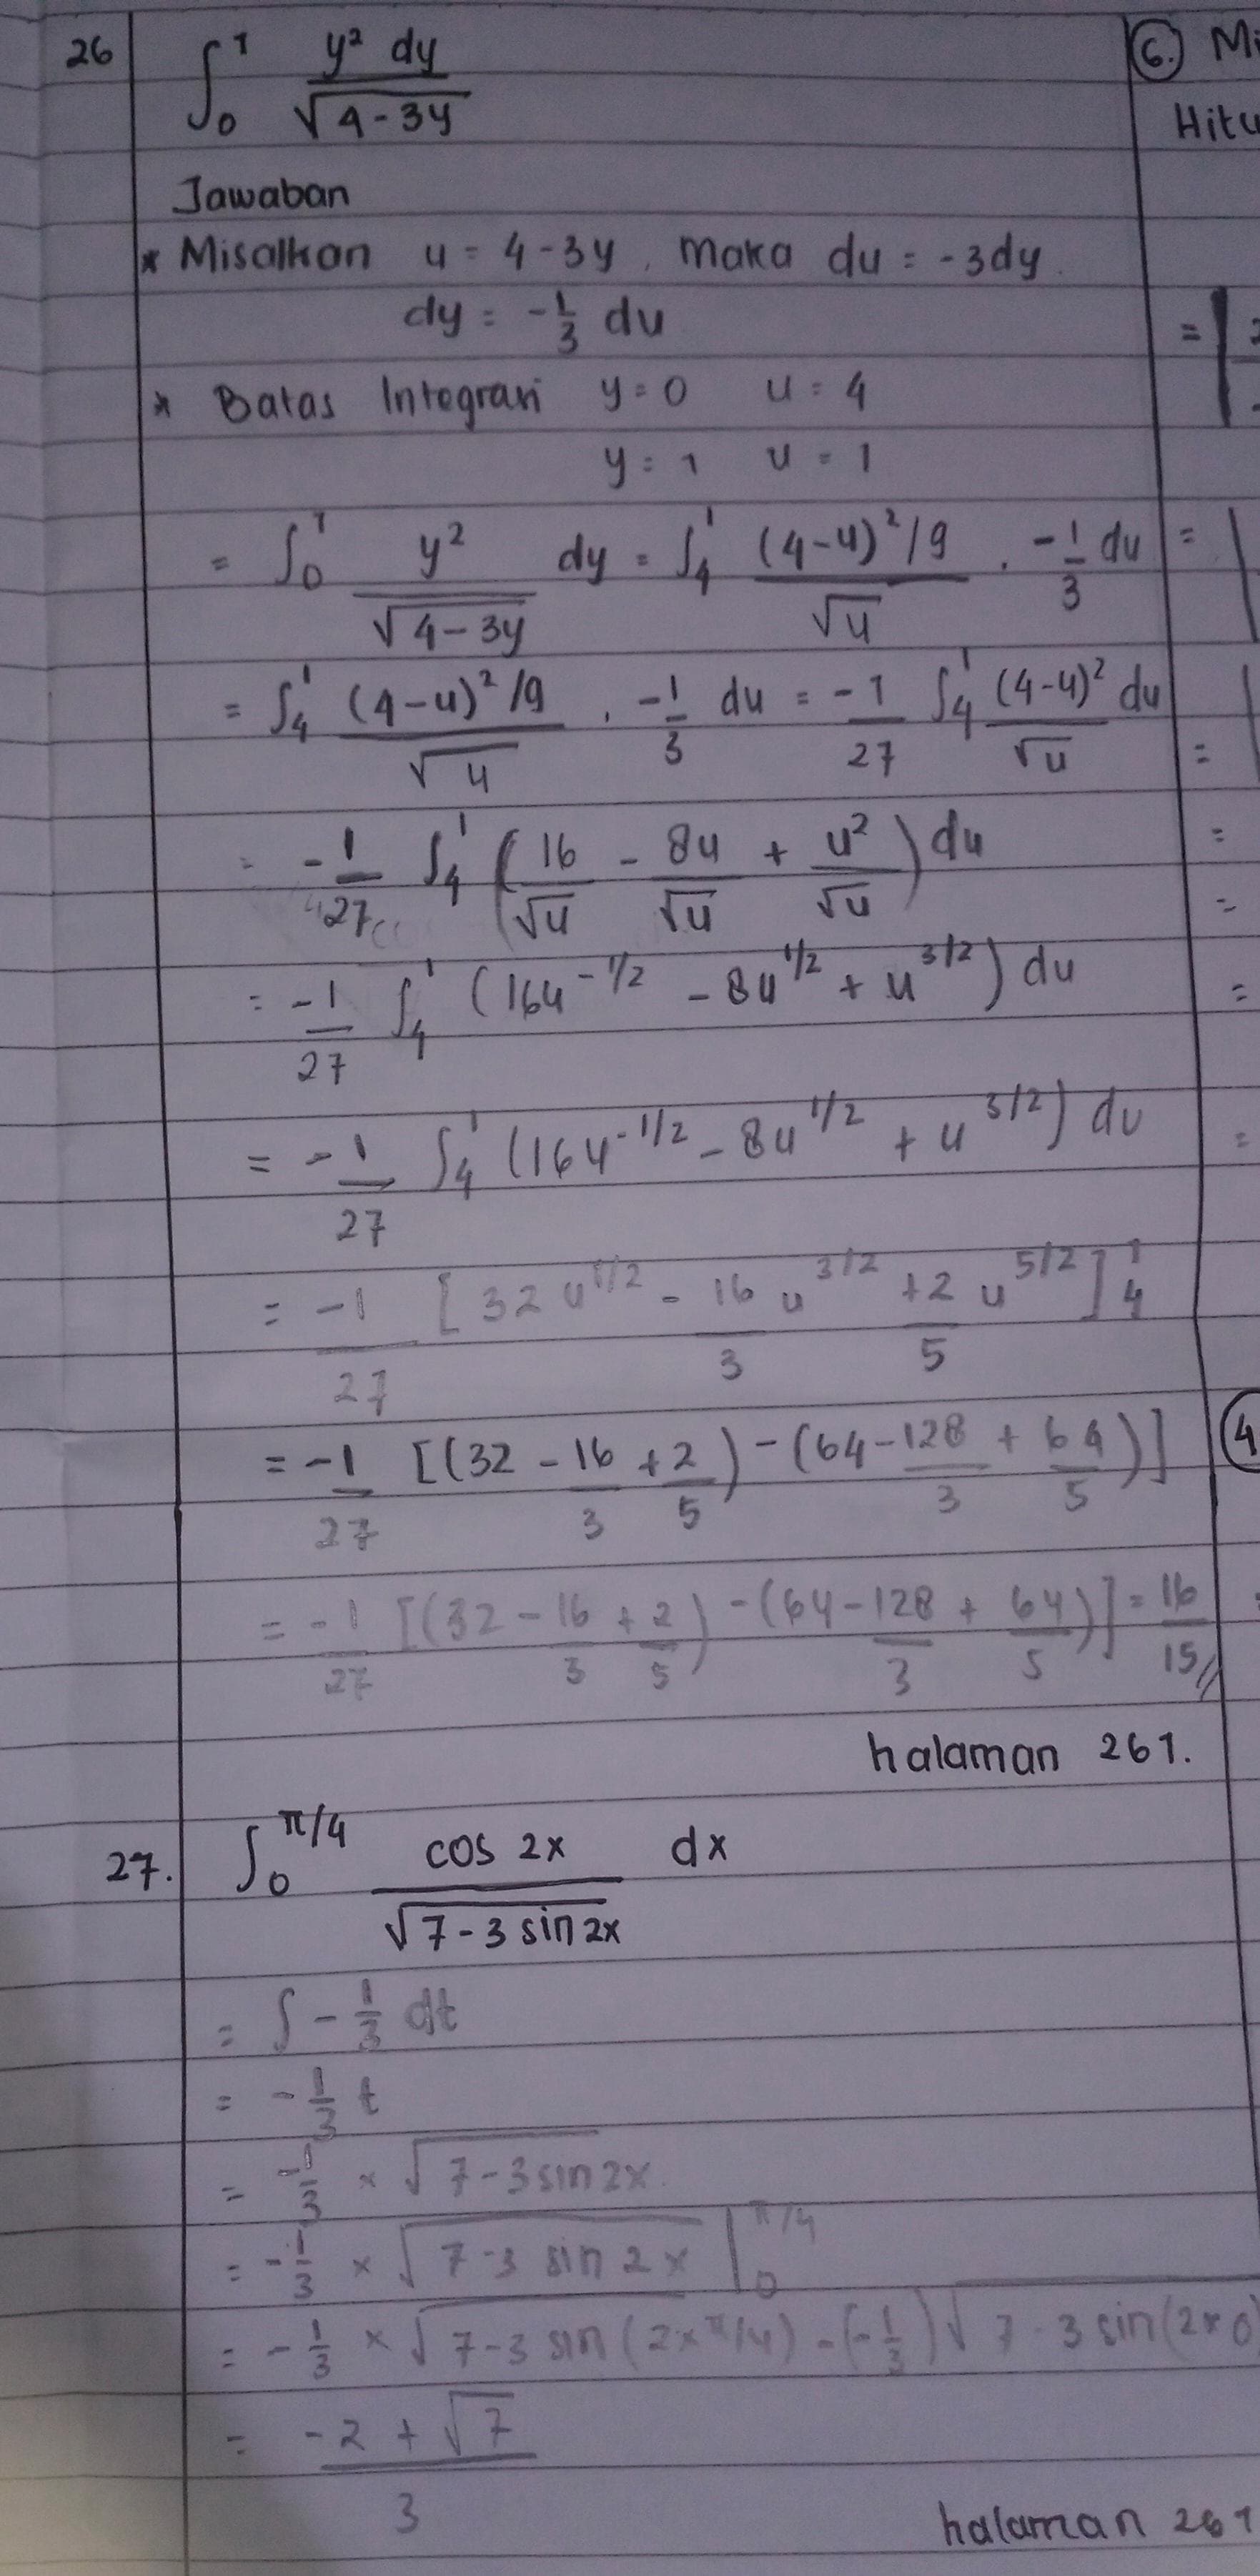 26 ∫₀¹ y² dy / √(4-3y)
Jawaban
* Misalkan u = 4-3y, maka du = -3dy.
dy = -1/3 du
* Batas Integrasi y=0 u=4
y=1 u=1
= ∫₀¹ y² / √(4-3y) dy = ∫₄¹ (4-u)²/9 / √u . -1/3 du
= ∫₄¹ (4-u)²/9 / √u . -1/3 du = -1/27 ∫₄¹ (4-u)² / √u du
= -1/27 ∫₄¹ (16/√u - 8u/√u + u²/√u) du
= -1/27 ∫₄¹ (16u^-1/2 - 8u^1/2 + u^3/2) du
= -1/27 ∫₄¹ (16u^-1/2 - 8u^1/2 + u^3/2) du
= -1/27 [32 u^1/2 - 16/3 u^3/2 + 2/5 u^5/2]₄¹
= -1/27 [(32 - 16/3 + 2/5) - (64 - 128/3 + 64/5)]
= -1/27 [(32 - 16/3 + 2/5) - (64 - 128/3 + 64/5)] = 16/15 //
halaman 261.
27. ∫₀^π/4 cos 2x / √(7-3 sin 2x) dx
= ∫ -1/3 dt
= -1/3 t
= -1/3 × √(7-3 sin 2x)
= -1/3 × √(7-3 sin 2x) |₀^π/4
= -1/3 × √(7-3 sin (2×π/4)) - (-1/3) √(7-3 sin (2×0
= (-2 + √7) / 3
halaman 261
6. Mi
Hitu
4